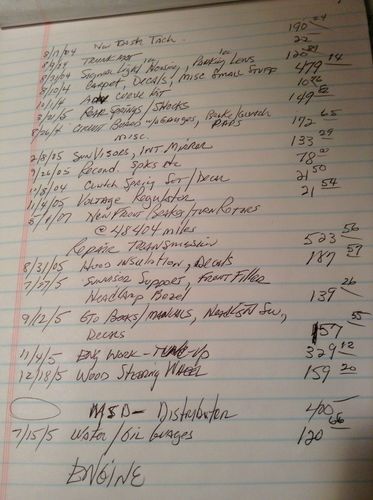 8/17/04 New Dash Tach. 190 24
8/4/04 Trunk Mat 22
8/3/04 Signal Light Housing, Parking Lens 120 81
8/12/4 Carpet, Decals, Misc Small Stuff 479 14
12/1/4 Adv Curve Kit 10 76
3/21/5 Rear Springs/Shocks 149 82
8/26/4 Circuit Board w/Gauges, Brake/Clutch Pads 172 65
Misc. 133 29
2/8/05 Sun Visors, Int Mirror 78 00
9/22/05 Recond. Spks etc 21 50
10/8/04 Clutch Spring Set/Decal 21 54
11/4/05 Voltage Regulator
5/1/07 New Front Brakes/Turn Rotors
@ 48404 miles
Repair Transmission 523 56
8/31/05 Hood Insulation, Decals 187 57
7/27/5 Sunvisor Support, Front Filler
Headlamp Bezel 139 26
9/2/5 GTO Books/Manuals, Headlgt Sw,
Decals 157 55
11/4/5 Eng Work - Tune-up 329 12
12/18/5 Wood Steering Wheel 159 20
MSD - Distributor 400
7/15/5 Water/Oil Gauges 120 66
ENGINE